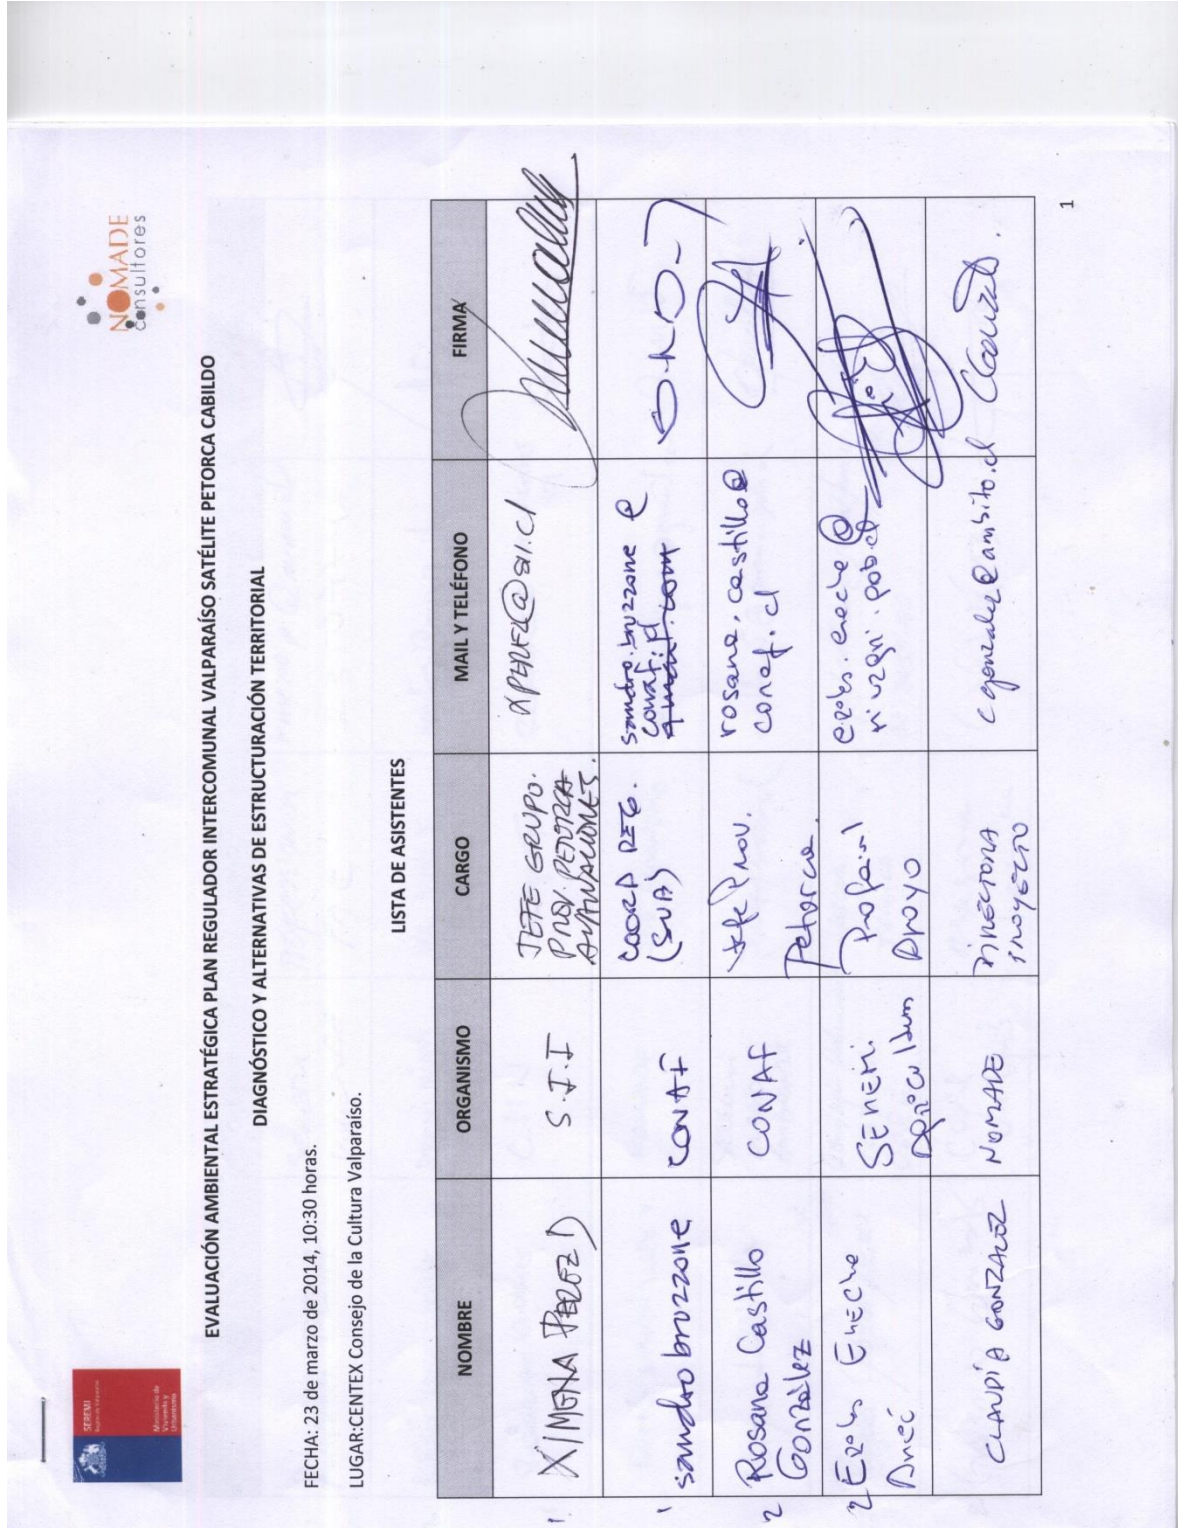 SEREMI
Ministerio de
Vivienda y
Urbanismo
NOMADE
consultores
EVALUACIÓN AMBIENTAL ESTRATÉGICA PLAN REGULADOR INTERCOMUNAL VALPARAÍSO SATÉLITE PETORCA CABILDO
DIAGNÓSTICO Y ALTERNATIVAS DE ESTRUCTURACIÓN TERRITORIAL
FECHA: 23 de marzo de 2014, 10:30 horas.
LUGAR:CENTEX Consejo de la Cultura Valparaíso.
LISTA DE ASISTENTES
NOMBRE ORGANISMO CARGO MAIL Y TELÉFONO FIRMA
1. XIMENA PEREZ D S.I.I JEFE GRUPO.
PROV. PETORCA
AVALUACIONES.
1 sandro bruzzone CONAF COORD REG.
(SUA)
sandro.bruzzone@
conaf.cl
2 Rosana Castillo
González
CONAF
Jefe Prov.
Petorca.
rosana.castillo@
conaf.cl
2
SEREMI
Apoyo
CLAUDIA GONZALEZ NOMADE DIRECTORA
PROYECTO
cgonzalez@ambito.cl
1